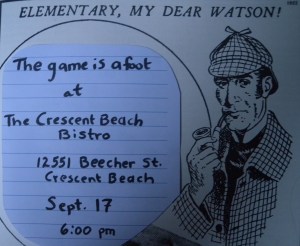 ELEMENTARY, MY DEAR WATSON!
The game is afoot
at
The Crescent Beach
Bistro
12551 Beecher St.
Crescent Beach
Sept. 17
6:00 pm